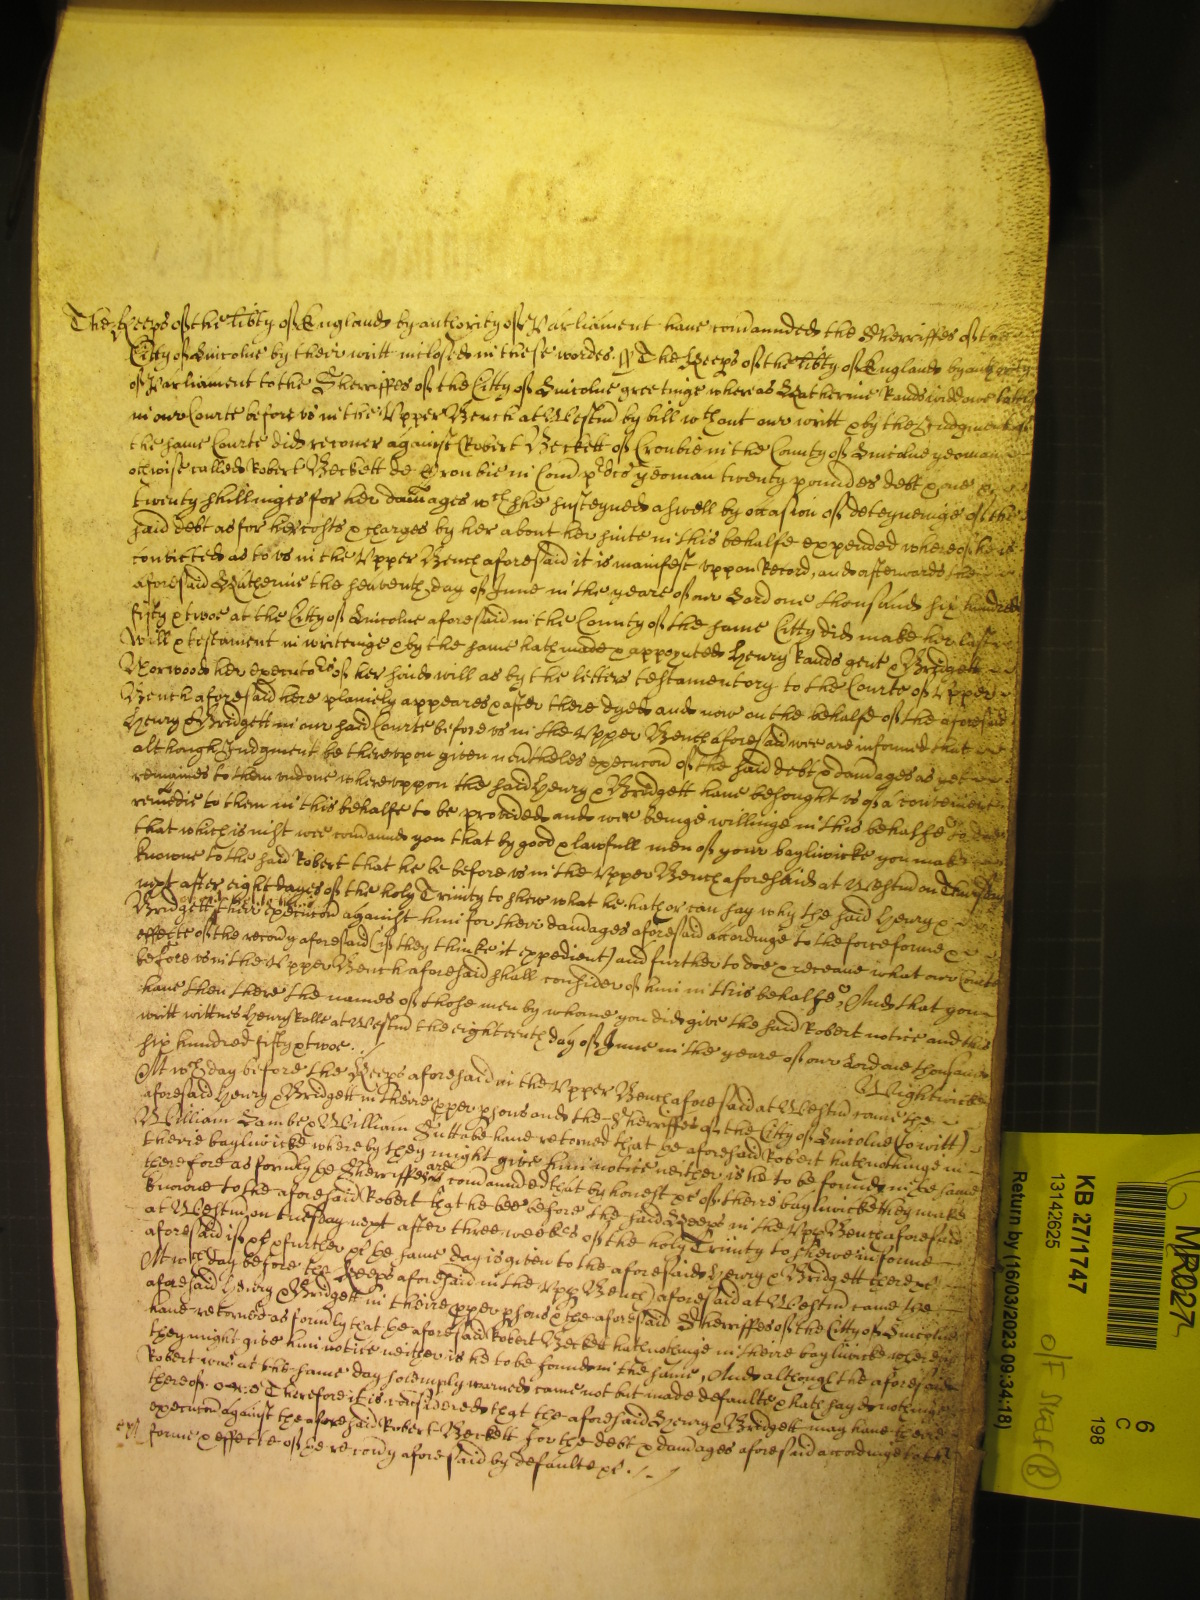 The Keeps of the libty of England by authority of Parliament have comannded the Sherriffes of the
Citty of Lincolne by their writt inclosed in these wordes. ss The Keeps of the libty of England by authority
of Parliament to the Sherriffes of the Citty of Lincolne greetinge whereas Katherine Rands widdowe lately
in our Courte before us in the Upper Bench at Westm by bill wthout our writt & by the Judgment of
the same Courte did recover against Robert Beckett of Cronbie in the County of Lincolne yeoman
otherwise called Robert Beckett de Cronbie in Com pdco yeoman twenty poundes debt & one &
twenty shillinges for her damages wch she susteyned aswell by occasion of deteyneinge of the
said debt as for her costs & charges by her about her suite in this behalfe expended whereof he is
convicted as to us in the Upper Bench aforesaid it is manifest uppon Record, and afterwards the
aforesaid Katherine the seaventh day of June in the yeare of our Lord one thousand six hundred
fifty & twoe at the Citty of Lincolne aforesaid in the County of the same Citty did make her last
will & testament in writeinge & by the same hath made & appoynted Henry Rands gent & Bridgett
Norwood her executors of her said will as by the letters testamentory to the Courte of Upper
Bench aforesaid here plainely appeares & after there dyed and now on the behalfe of the aforesaid
Henry & Bridgett in our said Courte before us in the Upper Bench aforesaid wee are informed that
although Judgment be thereupon given nontheles execucon of the said debt & damages as yet
remaines to them undone whereuppon the said Henry & Bridgett have besought us of a convenient
remedie to them in this behalfe to be provided and wee beinge willinge in this behalfe to doe
that which is right wee comannd you that by good & lawfull men of your bayliwicke you make
knowne to the said Robert that he be before us in the Upper Bench aforesaid at Westm on Thursday
next after eight dayes of the holy Trinity to shew what he hath or can say why the said Henry &
Bridgett their execucon against him for their damages aforesaid accordinge to the force forme &
effecte of the recovy aforesaid (if they thinke it expedient) and further to doe & receave what our Courte
before us in the Upper Bench aforesaid shall consider of him in this behalfe, And that you
have then there the names of those men by whome you did give the said Robert notice and this
writt wittnes Henry Rolle at Westm the eighteenth day of June in the yeare of our Lord one thousand
six hundred fifty & twoe.
Wightwicke
At wch day before the Keeps aforesaid in the Upper Bench aforesaid at Westm came the
aforesaid Henry & Bridgett in theire pper psons and the Sherriffes of the Citty of Lincolne (to witt)
William Lambe & William have retorned that the aforesaid Robert hath nothinge in
theire bayliwicke whereby they might give him notice neither is he to be found in the same
therefore as formly the Sherriffes are comannded that by honest &c of theire bayliwicke they make
knowne to the aforesaid Robert that he bee before the said Keeps in the Upp Bench aforesaid
at Westm on tuesday next after three weekes of the holy Trinity to shewe in forme
aforesaid if &c & further &c the same day is given to the aforesaid Henry & Bridgett there &c
At wch day before the Keeps aforesaid in the Upp Bench aforesaid at Westm came the
aforesaid Henry & Bridgett in theire pper psons & the aforesaid Sherriffes of the Citty of Lincolne
have retorned as formly that the aforesaid Robert Beckett hath nothinge in theire bayliwicke whereby
they might give him notice neither is he to be found in the same, And although the aforesaid
Robert was at the same day solemply warned came not but made defaulte & hath sayd nothinge
thereof. Therefore it is considered that the aforesaid Henry & Bridgett may have theire
execucon against the aforesaid Robert Beckett for the debt & damages aforesaid accordinge to the
forme & effecte of the recovy aforesaid by defaulte &c.
MR027
KB 27/1747
13142625
Return by (16/03/2023 09:34:18)
6
C
198